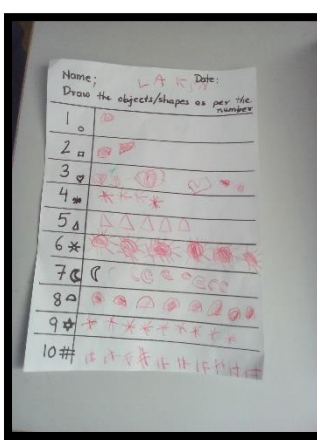 Name; LAK Date:
Draw the objects/shapes as per the
number
1
2
3
4
5
6
7
8
9
10